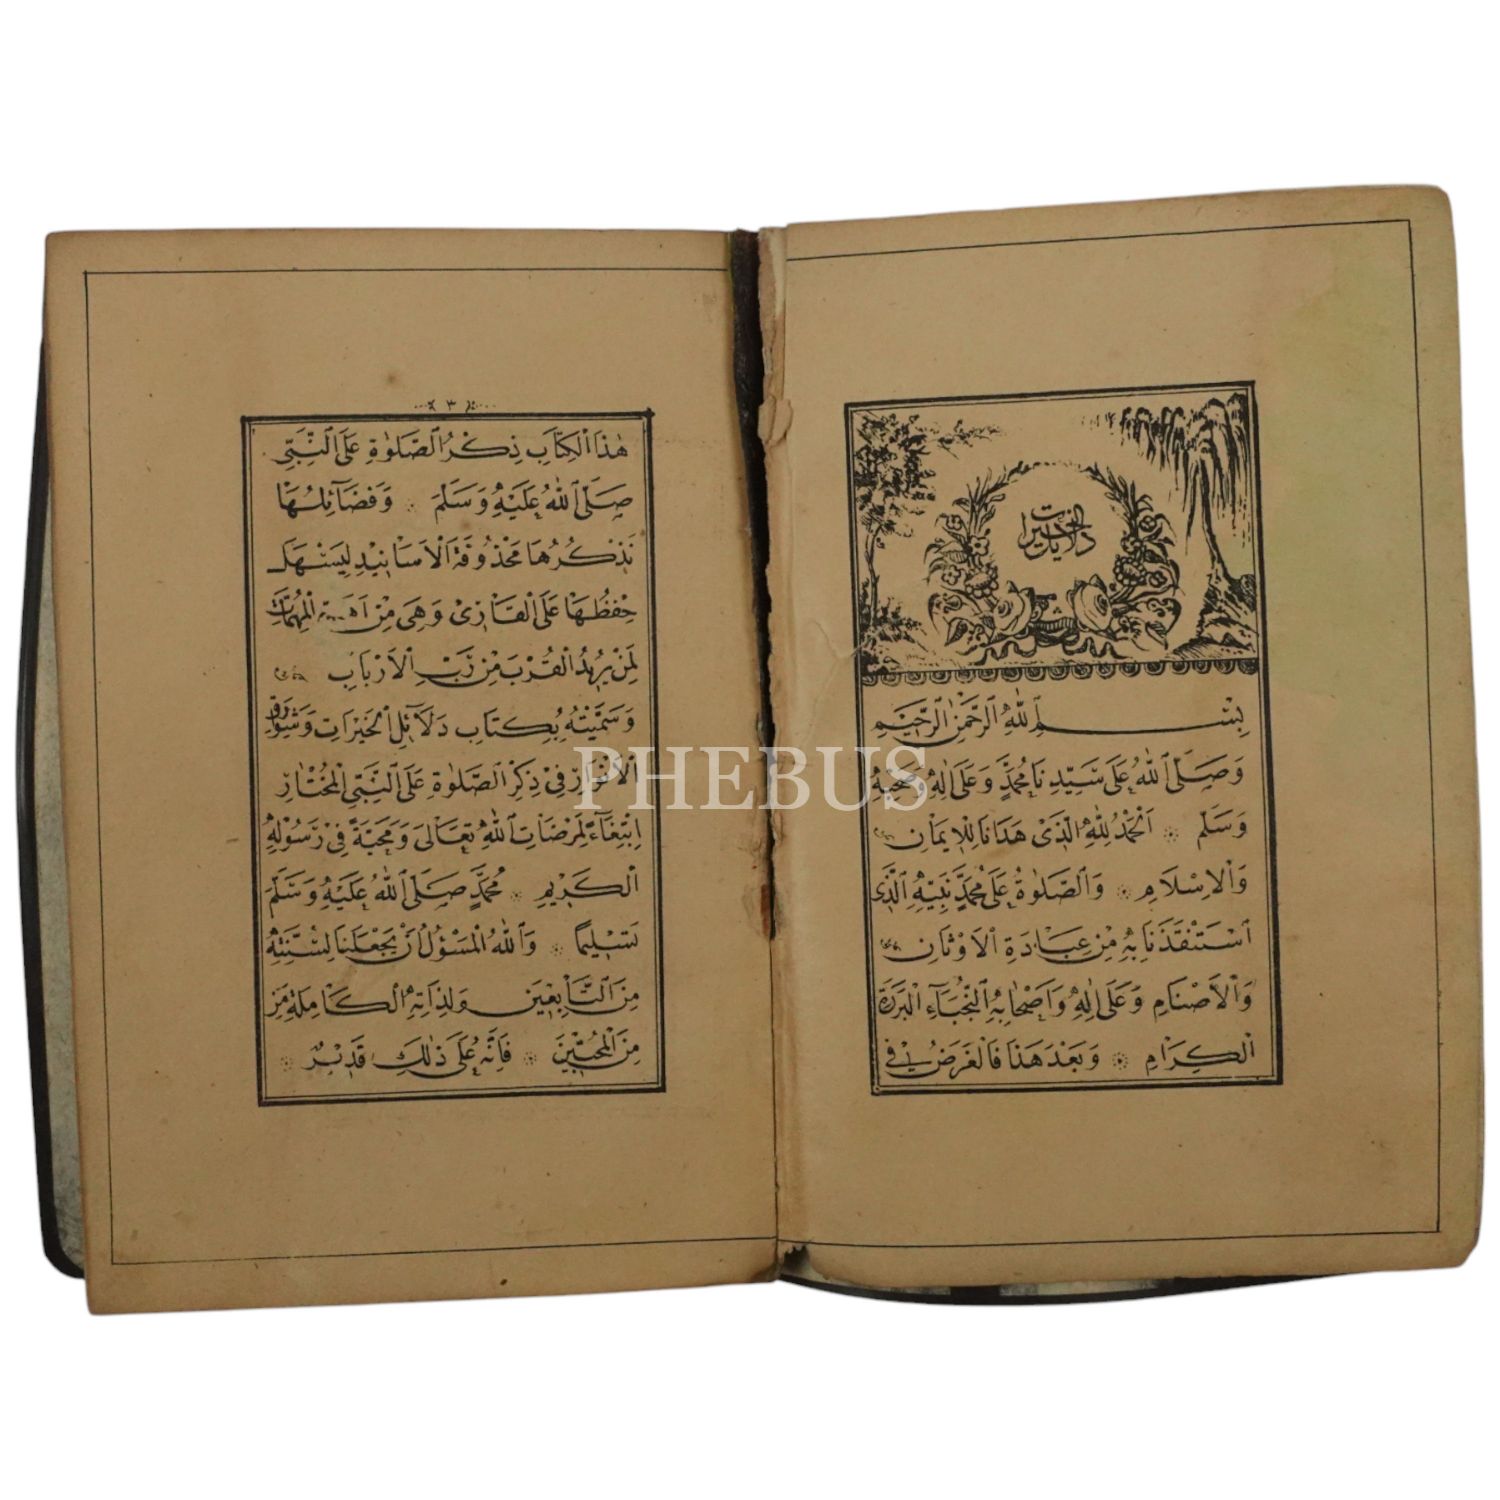 دلائل الخيرات
بِسْمِ اللّٰهِ الرَّحْمٰنِ الرَّحٖيمِ
وَصَلَّى اللّٰهُ عَلٰى سَيِّدِنَا مُحَمَّدٍ وَعَلٰى اٰلِهٖ وَصَحْبِهٖ
وَسَلَّمَ ۞ اَلْحَمْدُ لِلّٰهِ الَّذٖى هَدَانَا لِلْاٖيمَانِ
وَالْاِسْلَامِ ۞ وَالصَّلٰوةُ عَلٰى مُحَمَّدٍ نَبِيِّهِ الَّذٖى
اسْتَنْقَذَنَا بِهٖ مِنْ عِبَادَةِ الْاَوْثَانِ
وَالْاَصْنَامِ وَعَلٰى اٰلِهٖ وَاَصْحَابِهِ النُّجَبَآءِ الْبَرَرَةِ
الْكِرَامِ ۞ وَبَعْدَ هٰذَا فَالْغَرَضُ فٖى
٣
هٰذَا الْكِتَابِ ذِكْرُ الصَّلٰوةِ عَلَى النَّبِىِّ
صَلَّى اللّٰهُ عَلَيْهِ وَسَلَّمَ ۞ وَفَضَآئِلُهَا
نَذْكُرُهَا مَحْذُوفَةَ الْاَسَانٖيدِ لِيَسْهُلَ
حِفْظُهَا عَلَى الْقَارِئِ وَهِىَ مِنْ اَهَمِّ الْمُهِمَّاتِ
لِمَنْ يُرٖيدُ الْقُرْبَ مِنْ رَبِّ الْاَرْبَابِ
وَسَمَّيْتُهُ بِكِتَابِ دَلَآئِلِ الْخَيْرَاتِ وَشَوَارِقِ
الْاَنْوَارِ فٖى ذِكْرِ الصَّلٰوةِ عَلَى النَّبِىِّ الْمُخْتَارِ
اِبْتِغَآءً لِمَرْضَاتِ اللّٰهِ تَعَالٰى وَمَحَبَّةً فٖى رَسُولِهِ
الْكَرٖيمِ ۞ مُحَمَّدٍ صَلَّى اللّٰهُ عَلَيْهِ وَسَلَّمَ
تَسْلٖيمًا ۞ وَاللّٰهُ الْمَسْؤُلُ اَنْ يَجْعَلَنَا لِسُنَّتِهٖ
مِنَ التَّابِعٖينَ وَلِذَاتِهِ الْكَامِلَةِ مِنَ
مِنَ الْمُحِبّٖينَ ۞ فَاِنَّهُ عَلٰى ذٰلِكَ قَدٖيرٌ ۞
PHEBUS